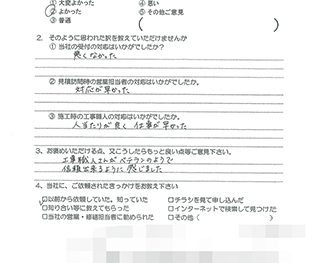 ① 大変よかった ④ 悪い
② よかった ⑤ その他ご意見
③ 普通 ( )
2. そのように思われた訳を教えていただけませんか
① 当社の受付の対応はいかがでしたか?
悪くなかった
② 見積訪問時の営業担当者の対応はいかがでしたか。
対応が早かった
③ 施工時の工事職人の対応はいかがでしたか。
人当たりが良く 仕事が早かった
3. お褒めいただける点、又こうしたらもっと良い点等ご意見下さい。
工事職人さんがベテランのようで
信頼出来るように感じました
4. 当社に、ご依頼されたきっかけをお教え下さい
□以前から依頼していた。知っていた □チラシを見て申し込んだ
□知り合い等に教えてもらった □インターネットで検索して見つけた
□当社の営業・修繕担当者に勧められた □その他 (